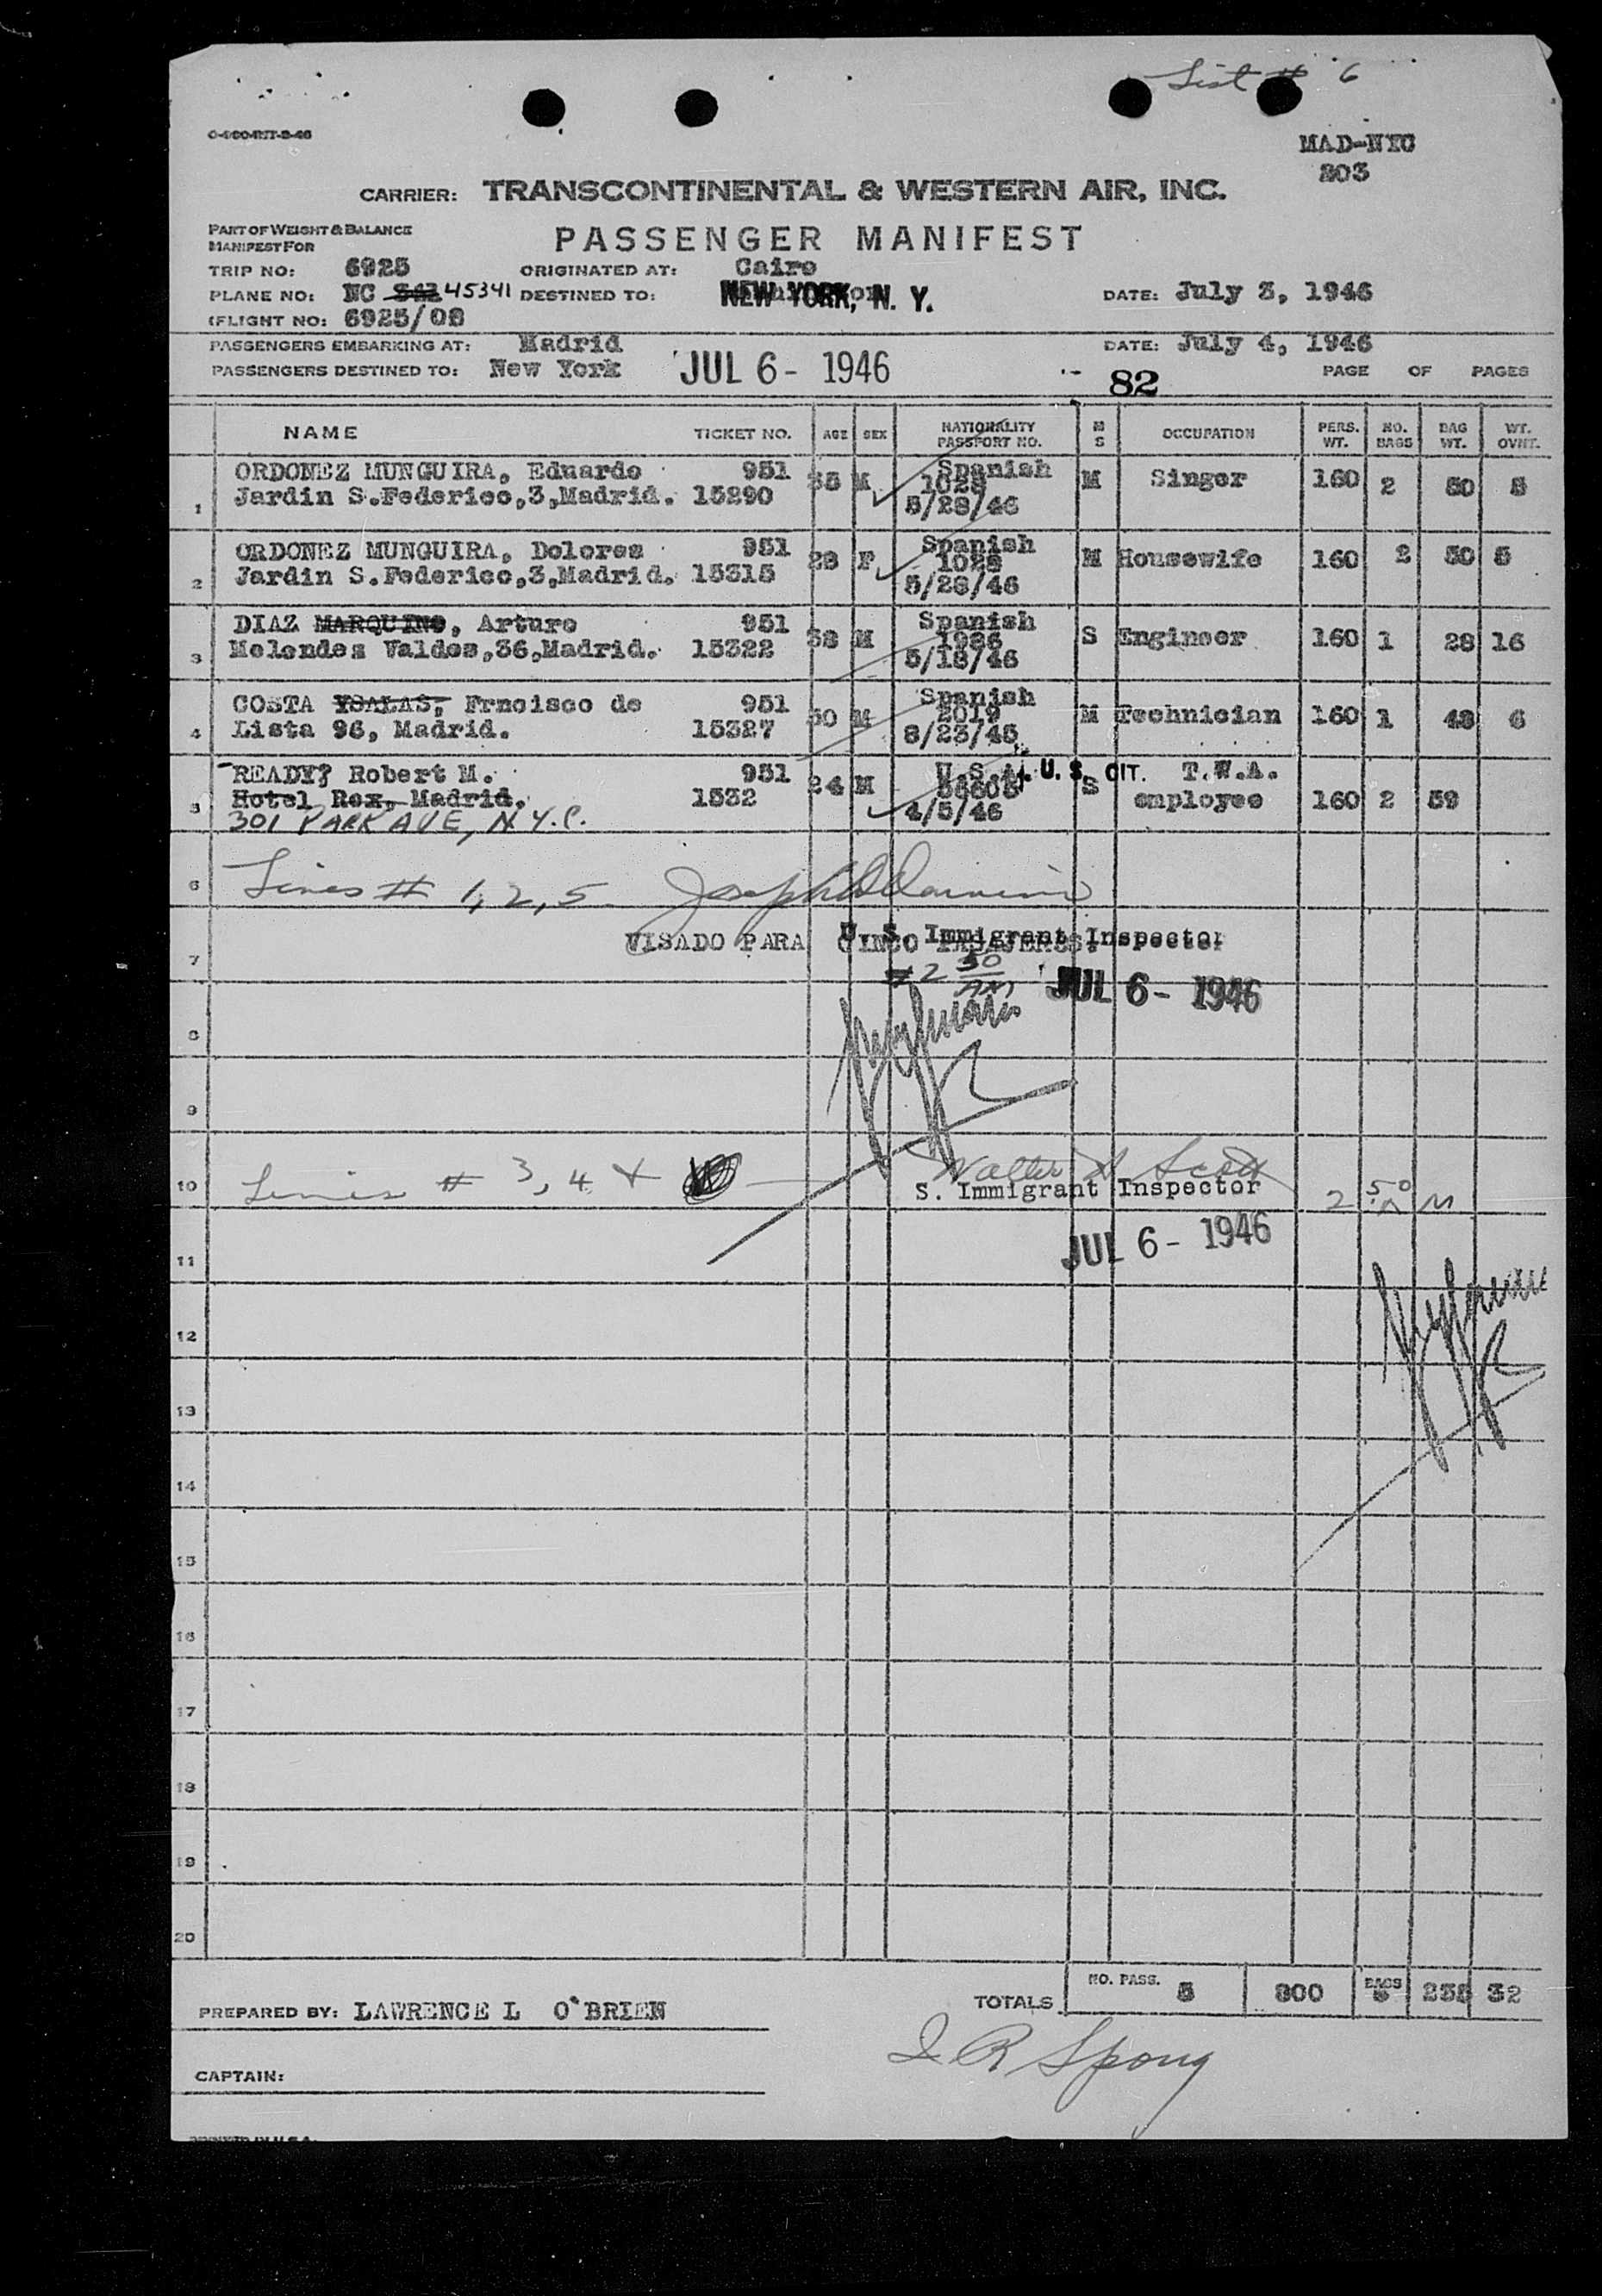 List # 6
MAD-NYC
203
CARRIER: TRANSCONTINENTAL & WESTERN AIR, INC.
PART OF WEIGHT & BALANCE
MANIFEST FOR
PASSENGER MANIFEST
TRIP NO: 6925 ORIGINATED AT: Cairo
PLANE NO: NC 45341 DESTINED TO: NEW YORK, N. Y. DATE: July 3, 1946
(FLIGHT NO: 6925/08
PASSENGERS EMBARKING AT: Madrid DATE: July 4, 1946
PASSENGERS DESTINED TO: New York JUL 6 - 1946 82 PAGE OF PAGES
NAME TICKET NO. AGE SEX NATIONALITY PASSPORT NO. M S OCCUPATION PERS. WT. NO. BAGS BAG WT. WT. OVNT.
1 ORDONEZ MUNGUIRA, Eduardo 951 35 M Spanish M Singer 160 2 50 5
Jardin S.Federico,3,Madrid. 15290 1028
5/28/46
2 ORDONEZ MUNGUIRA, Dolores 951 28 F Spanish M Housewife 160 2 50 5
Jardin S.Federico,3,Madrid. 15315 1028
5/28/46
3 DIAZ MARQUINO, Arturo 951 38 M Spanish S Engineer 160 1 28 16
Melendes Valdes,36,Madrid. 15322 1986
5/18/46
4 COSTA YSALAS, Frncisco de 951 50 M Spanish M Technician 160 1 48 6
Lista 96, Madrid. 15327 2019
8/23/45
5 READY? Robert M. 951 24 M U.S.A. U. S. CIT. S T.W.A.
Hotel Rex, Madrid. 1532 employee 160 2 59
301 PARK AVE, N.Y.C. 4/5/46
6 Lines # 1, 2, 5.
7 VISADO PARA CINCO PASAJEROS.
U. S. Immigrant Inspector
2 50 AM JUL 6 - 1946
8
9
10 Lines # 3, 4 + Walter A Scott
S. Immigrant Inspector 2 50 AM
JUL 6 - 1946
11
12
13
14
15
16
17
18
19
20
TOTALS NO. PASS. 5 800 BAGS 8 235 32
PREPARED BY: LAWRENCE L O'BRIEN
CAPTAIN:
PRINTED IN U.S.A.